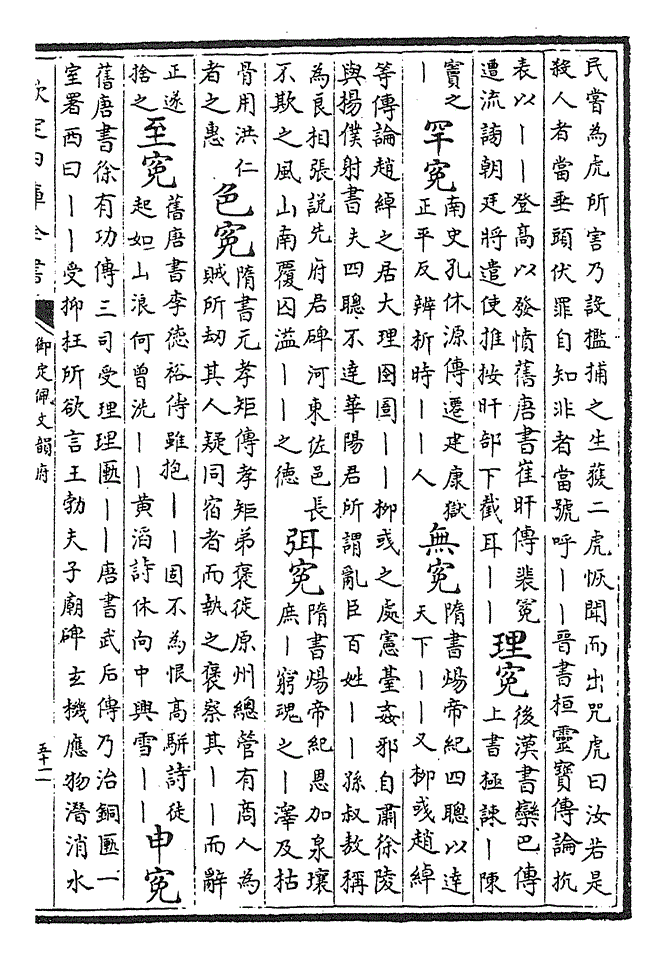 民嘗為虎所害乃設檻捕之生獲二虎恢聞而出咒虎曰汝若是
殺人者當垂頭伏罪自知非者當號呼丨丨晉書桓靈寶傳論抗
表以丨丨登高以發憤舊唐書崔旰傳裴冕
遭流謗朝廷將遣使推按旰部下截耳丨丨
理冤
後漢書欒巴傳
上書極諫丨陳
竇之
丨
罕冤
南史孔休源傳遷建康獄
正平反辨析時丨丨人
無冤
隋書煬帝紀四聰以達
天下丨丨又柳彧趙綽
等傳論趙綽之居大理囹圄丨丨柳彧之處憲臺姦邪自肅徐陵
與揚僕射書夫四聰不達華陽君所謂亂臣百姓丨丨孫叔敖稱
為良相張說先府君碑河東佐邑長
不欺之風山南覆囚溢丨丨之德
弭冤
隋書煬帝紀恩加泉壤
庶丨窮瑰之丨澤及枯
骨用洪仁
者之惠
色冤
隋書元孝矩傳孝矩弟褒從原州總管有商人為
賊所劫其人疑同宿者而執之褒察其丨丨而辭
正遂
捨之
至冤
舊唐書李德裕傳雖抱丨丨固不為恨高駢詩徒
起如山浪何曾洗丨丨黃滔詩休向中興雪丨丨
申冤
舊唐書徐有功傳三司受理理匭丨丨唐書武后傳乃治銅匭一
室署西曰丨丨受抑枉所欲言王勃夫子廟碑玄機應物潛消水
欽定四庫全書
御定佩文韻府
五十二